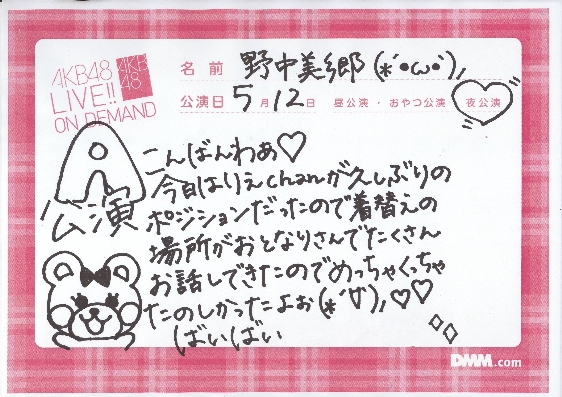 AKB48
LIVE!!
ON DEMAND
AKB
48
名前 野中美郷(*´•ω•`)ﾉ
公演日 5月12日 昼公演・おやつ公演 夜公演
A公演
こんばんわぁ♡
今日はりえchanが久しぶりの
ポジションだったので着替えの
場所がおとなりさんでたくさん
お話しできたのでめっちゃくっちゃ
たのしかったよぉ(*´∇`)ﾉ♡♡
ばいばい
DMM.com